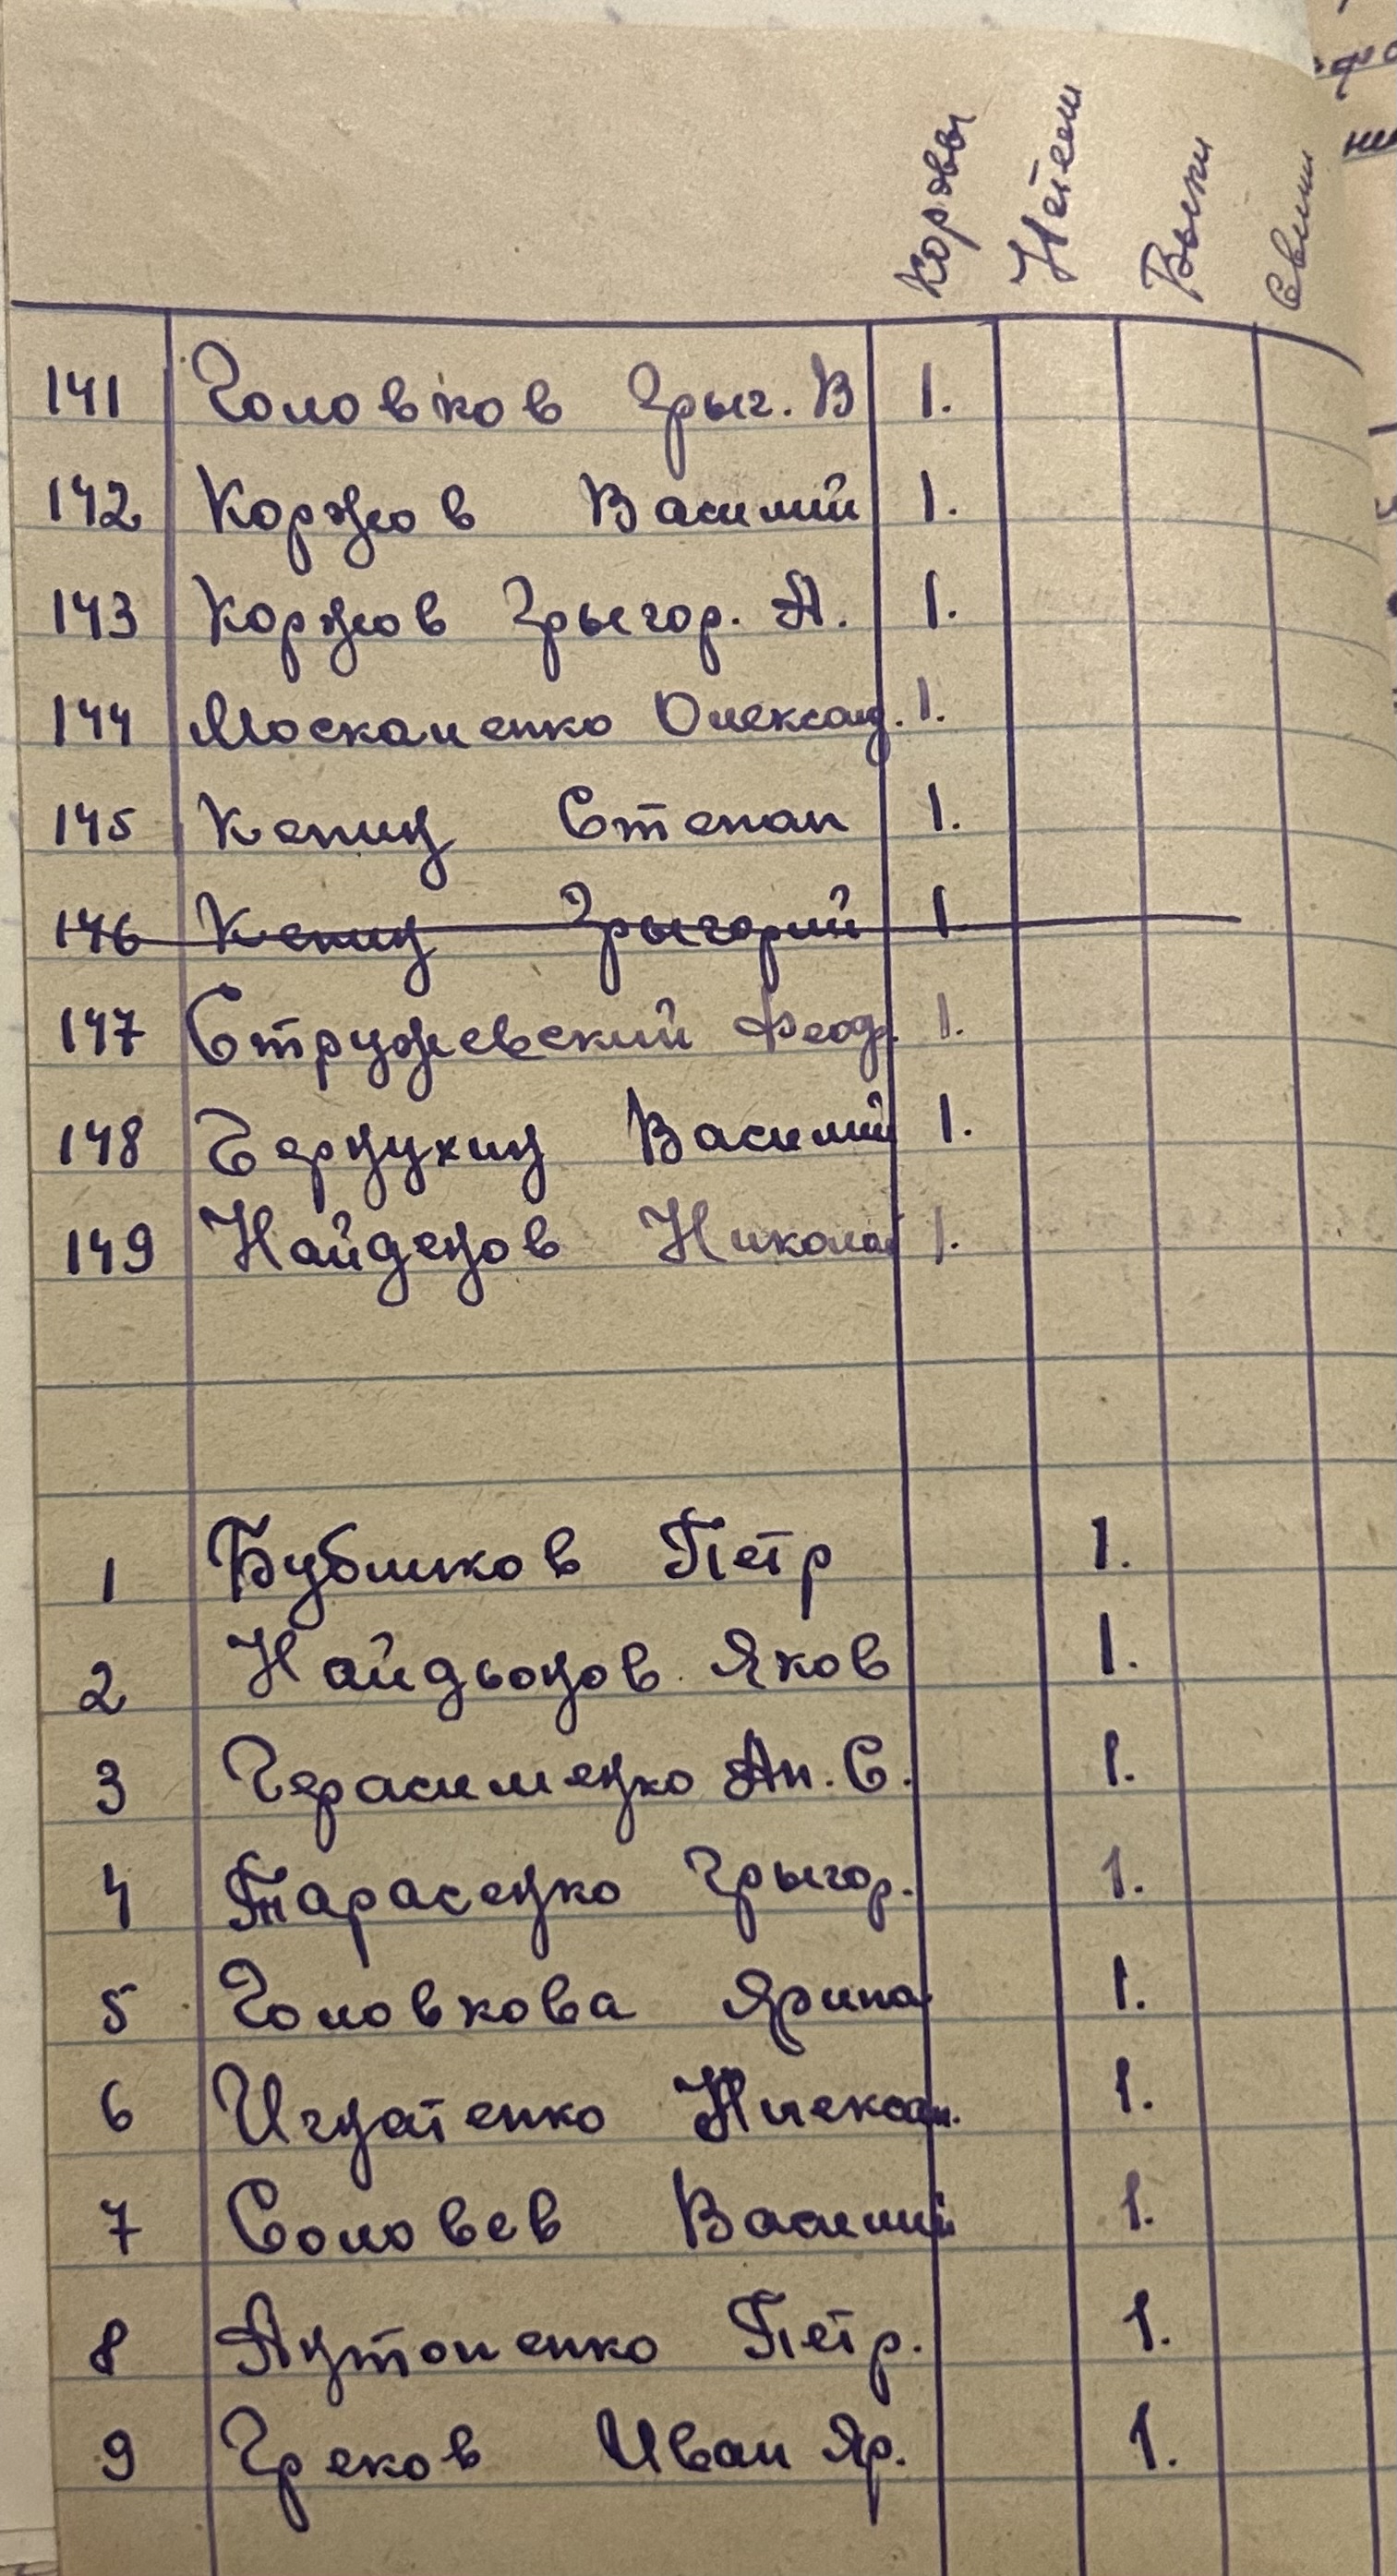 Коровы Нетели Быки Свиньи
141 Головков Грыг. В 1.
142 Коржов Василий 1.
143 Коржов Грыгор. А. 1.
144 Москаленко Олександ. 1.
145 Кепин Степан 1.
146 Кепин Грыгорий 1
147 Стружевский Феод. 1.
148 Василий 1.
149 Найденов Никола 1.
1 Бубликов Петр 1.
2 Найдьонов Яков 1.
3 Герасименко Ан. С. 1.
4 Тарасенко Грыгор. 1.
5 Головкова Ярина 1.
6 Игнатенко Алексан. 1.
7 Соловев Василий 1.
8 Антоненко Петр. 1.
9 Греков Иван Яр. 1.